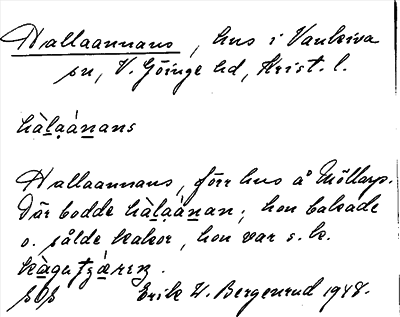 Hallaannans, hus i Vankiva
sn, V. Göinge hd, Krist. l.
hàlaánans
Hallaannans, förr hus å Möllarp.
Där bodde hàlaánan; hon bakade
o. sålde kakor, hon var s. k.
Erik W. Bergenrud 1948.